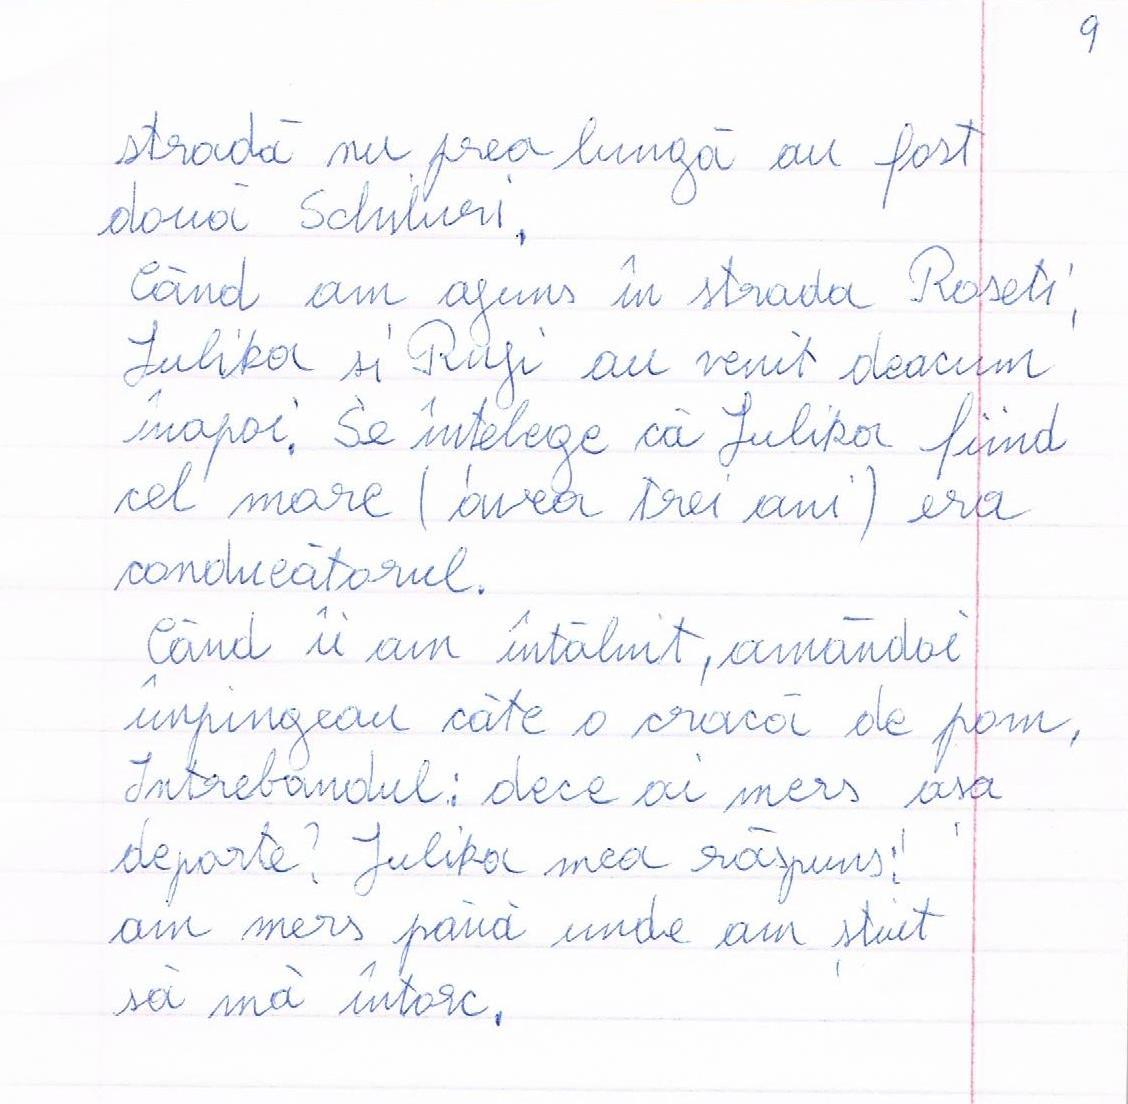 9
stradă nu prea lungă au fost
două Schituri.
Când am ajuns în strada Roseti,
Julika și Rugi au venit deacum
înapoi. Se întelege că Julika fiind
cel mare (avea trei ani) era
conducătorul.
Când îi am întâlnit, amândoi
înpingeau câte o cracă de pom,
Intrebandul: dece ai mers asa
departe? Julika mea răspuns:
am mers până unde am știut
să mă întorc.